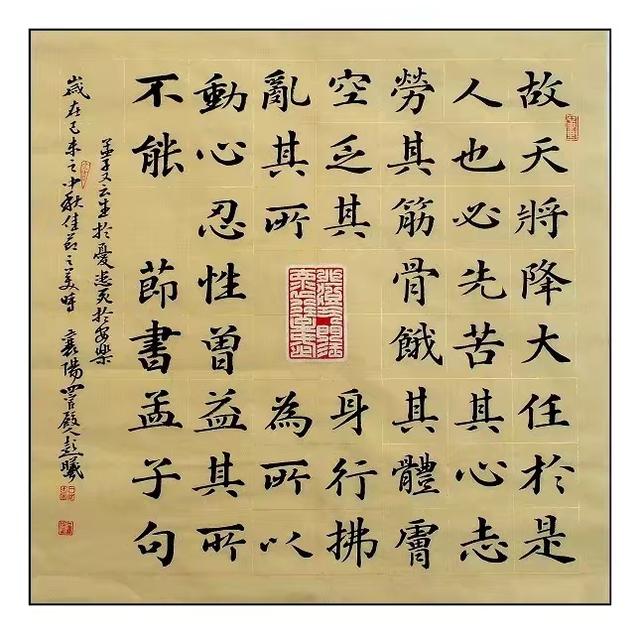 故天將降大任於是
人也必先苦其心志
勞其筋骨餓其體膚
空乏其身行拂
亂其所為所以
動心忍性曾益其所
不能 節書孟子句
孟子又云生於憂患死於安樂
歲在未之中秋佳节之美時 襄陽四官殿人曦